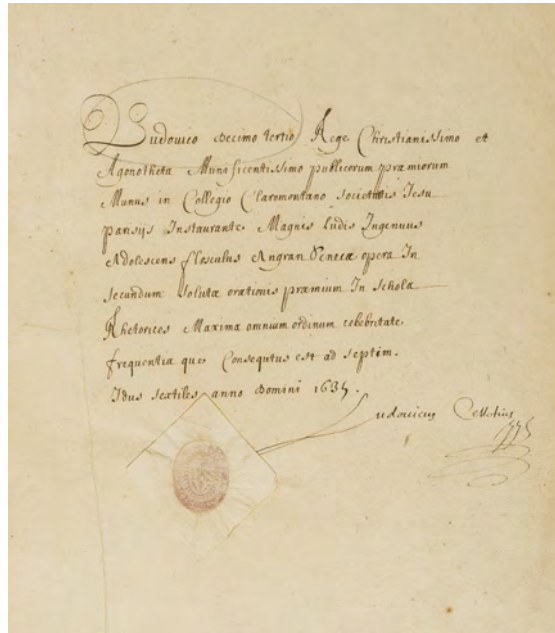 Ludouico Decimo tertio Rege Christianissimo et
Agonotheta Munificentissimo publicorum præmiorum
Munus in Collegio Claromontano societatis Iesu
parisijs Instaurante Magnis ludis Ingenuus
Adolescens flosculus Angran Senecæ opera In
secundum solutæ orationis præmium In schola
Rhetorices Maxima omnium ordinum celebritate
frequentia que Consequtus est ad septim.
Idus sextiles anno Domini 1635.
Ludouicus Cellotius